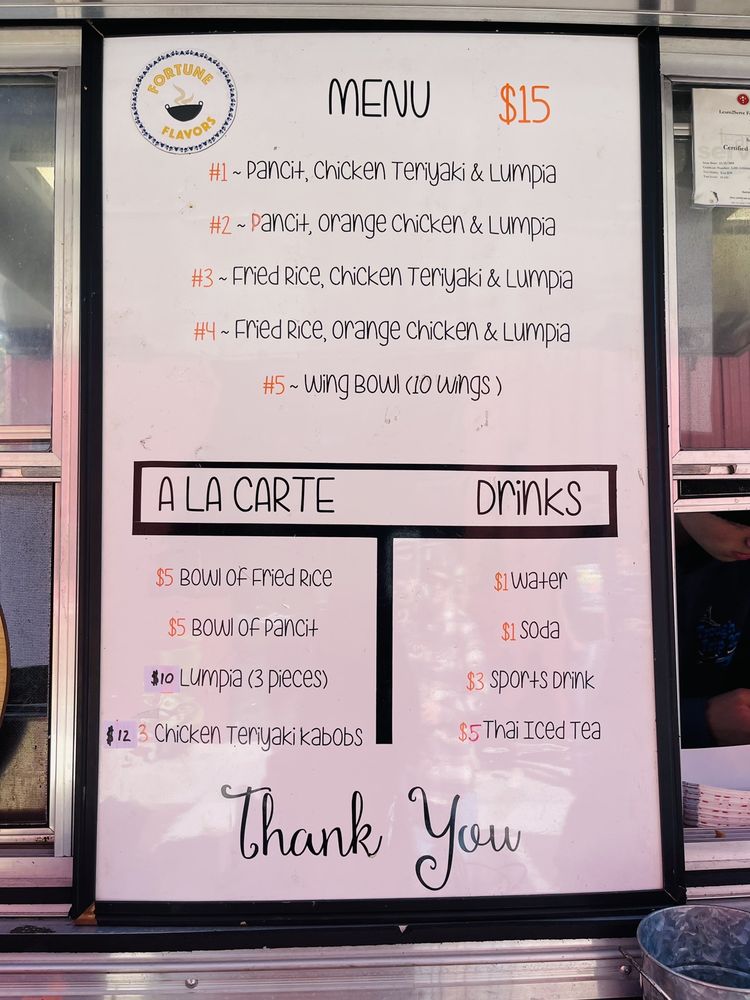 FORTUNE
FLAVORS
MENU $15
#1 ~ Pancit, Chicken Teriyaki & Lumpia
#2 ~ Pancit, Orange Chicken & Lumpia
#3 ~ Fried Rice, Chicken Teriyaki & Lumpia
#4 ~ Fried Rice, Orange Chicken & Lumpia
#5 ~ Wing Bowl (10 Wings )
A LA CARTE
Drinks
$5 Bowl of Fried Rice
$5 Bowl of Pancit
$10 Lumpia (3 pieces)
$12 3 Chicken Teriyaki Kabobs
$1 Water
$1 Soda
$3 Sports Drink
$5 Thai Iced Tea
Thank You
Certified